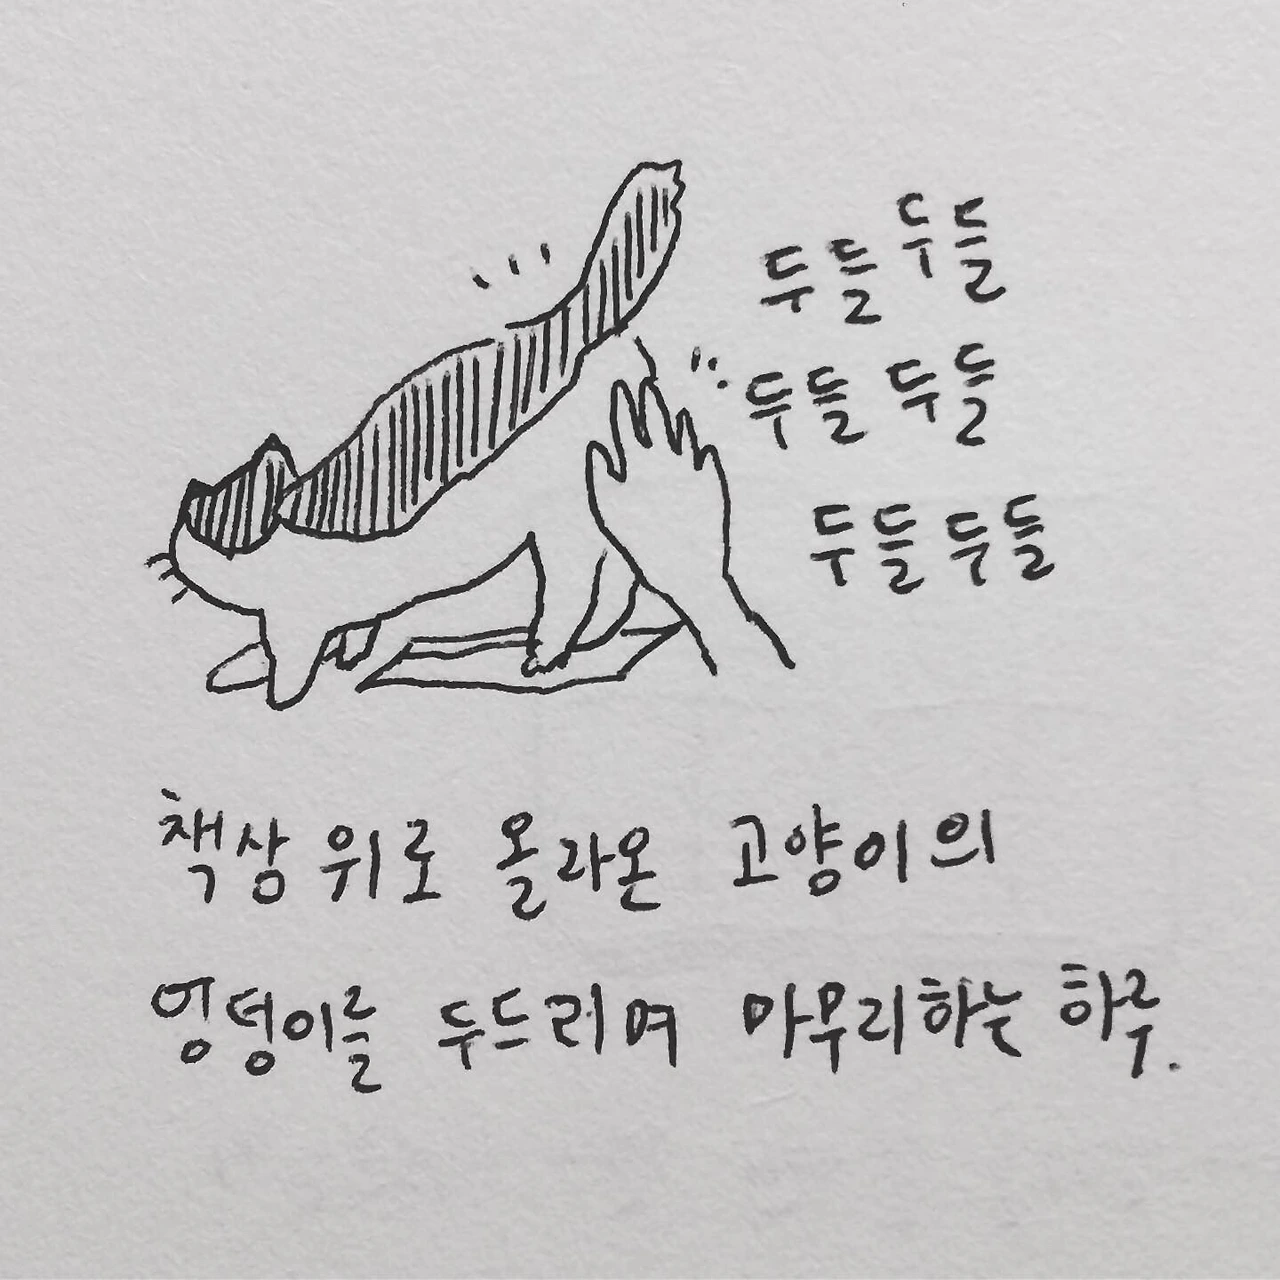 두들두들
두들 두들
두들두들
책상 위로 올라온 고양이의
엉덩이를 두드리며 마무리하는 하루.